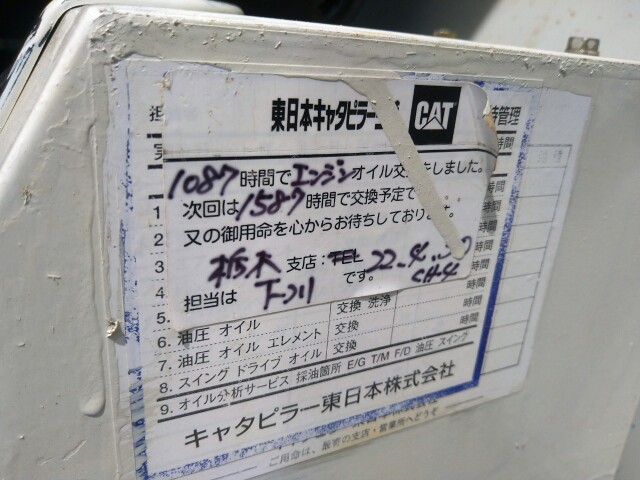 東日本キャタピラー三菱
CAT
担
時管理
実
時間
1087時間でエンジンオイル交換をしました。
次回は1587時間で交換予定で
又の御用命を心からお待ちしております。
栃木 支店:TEL 22.4.30
担当は 下川 です。 CH-4
1.
2
3
4
5.
時間
時間
時間
時間
6. 油圧 オイル 交換 洗浄 時間
7. 油圧 オイル エレメント 交換
8. スイング ドライブ オイル 交換
9. オイル分析サービス 採油箇所 E/G T/M F/D 油圧 スイング
キャタピラー東日本株式会社
ご用命は、最寄の支店・営業所へどうぞ